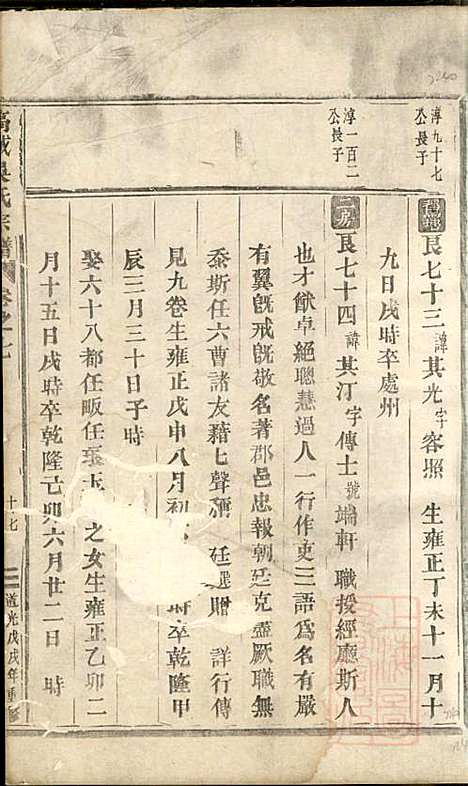 淳九十七
公長子
良七十三諱其光字容照 生雍正丁未十一月十
九日戌時卒處州
淳一百二
公長子
二房
良七十四諱其汀字傳士號端軒 職授經廳斯人
也才猷卓絕聰慧過人一行作吏三語為名有嚴
有翼旣戒旣敬名著郡邑忠報朝廷克盡厥職無
忝斯任六曹諸友藉七聲 廷 贈 詳行傳
見九卷生雍正戊申八月初 時卒乾隆甲
辰三月三十日子時
娶六十八都任畈任 之女生雍正乙卯二
月十五日戌時卒乾隆己卯六月廿二日 時
氏宗譜
卷之七
十七
道光戊戌年重修